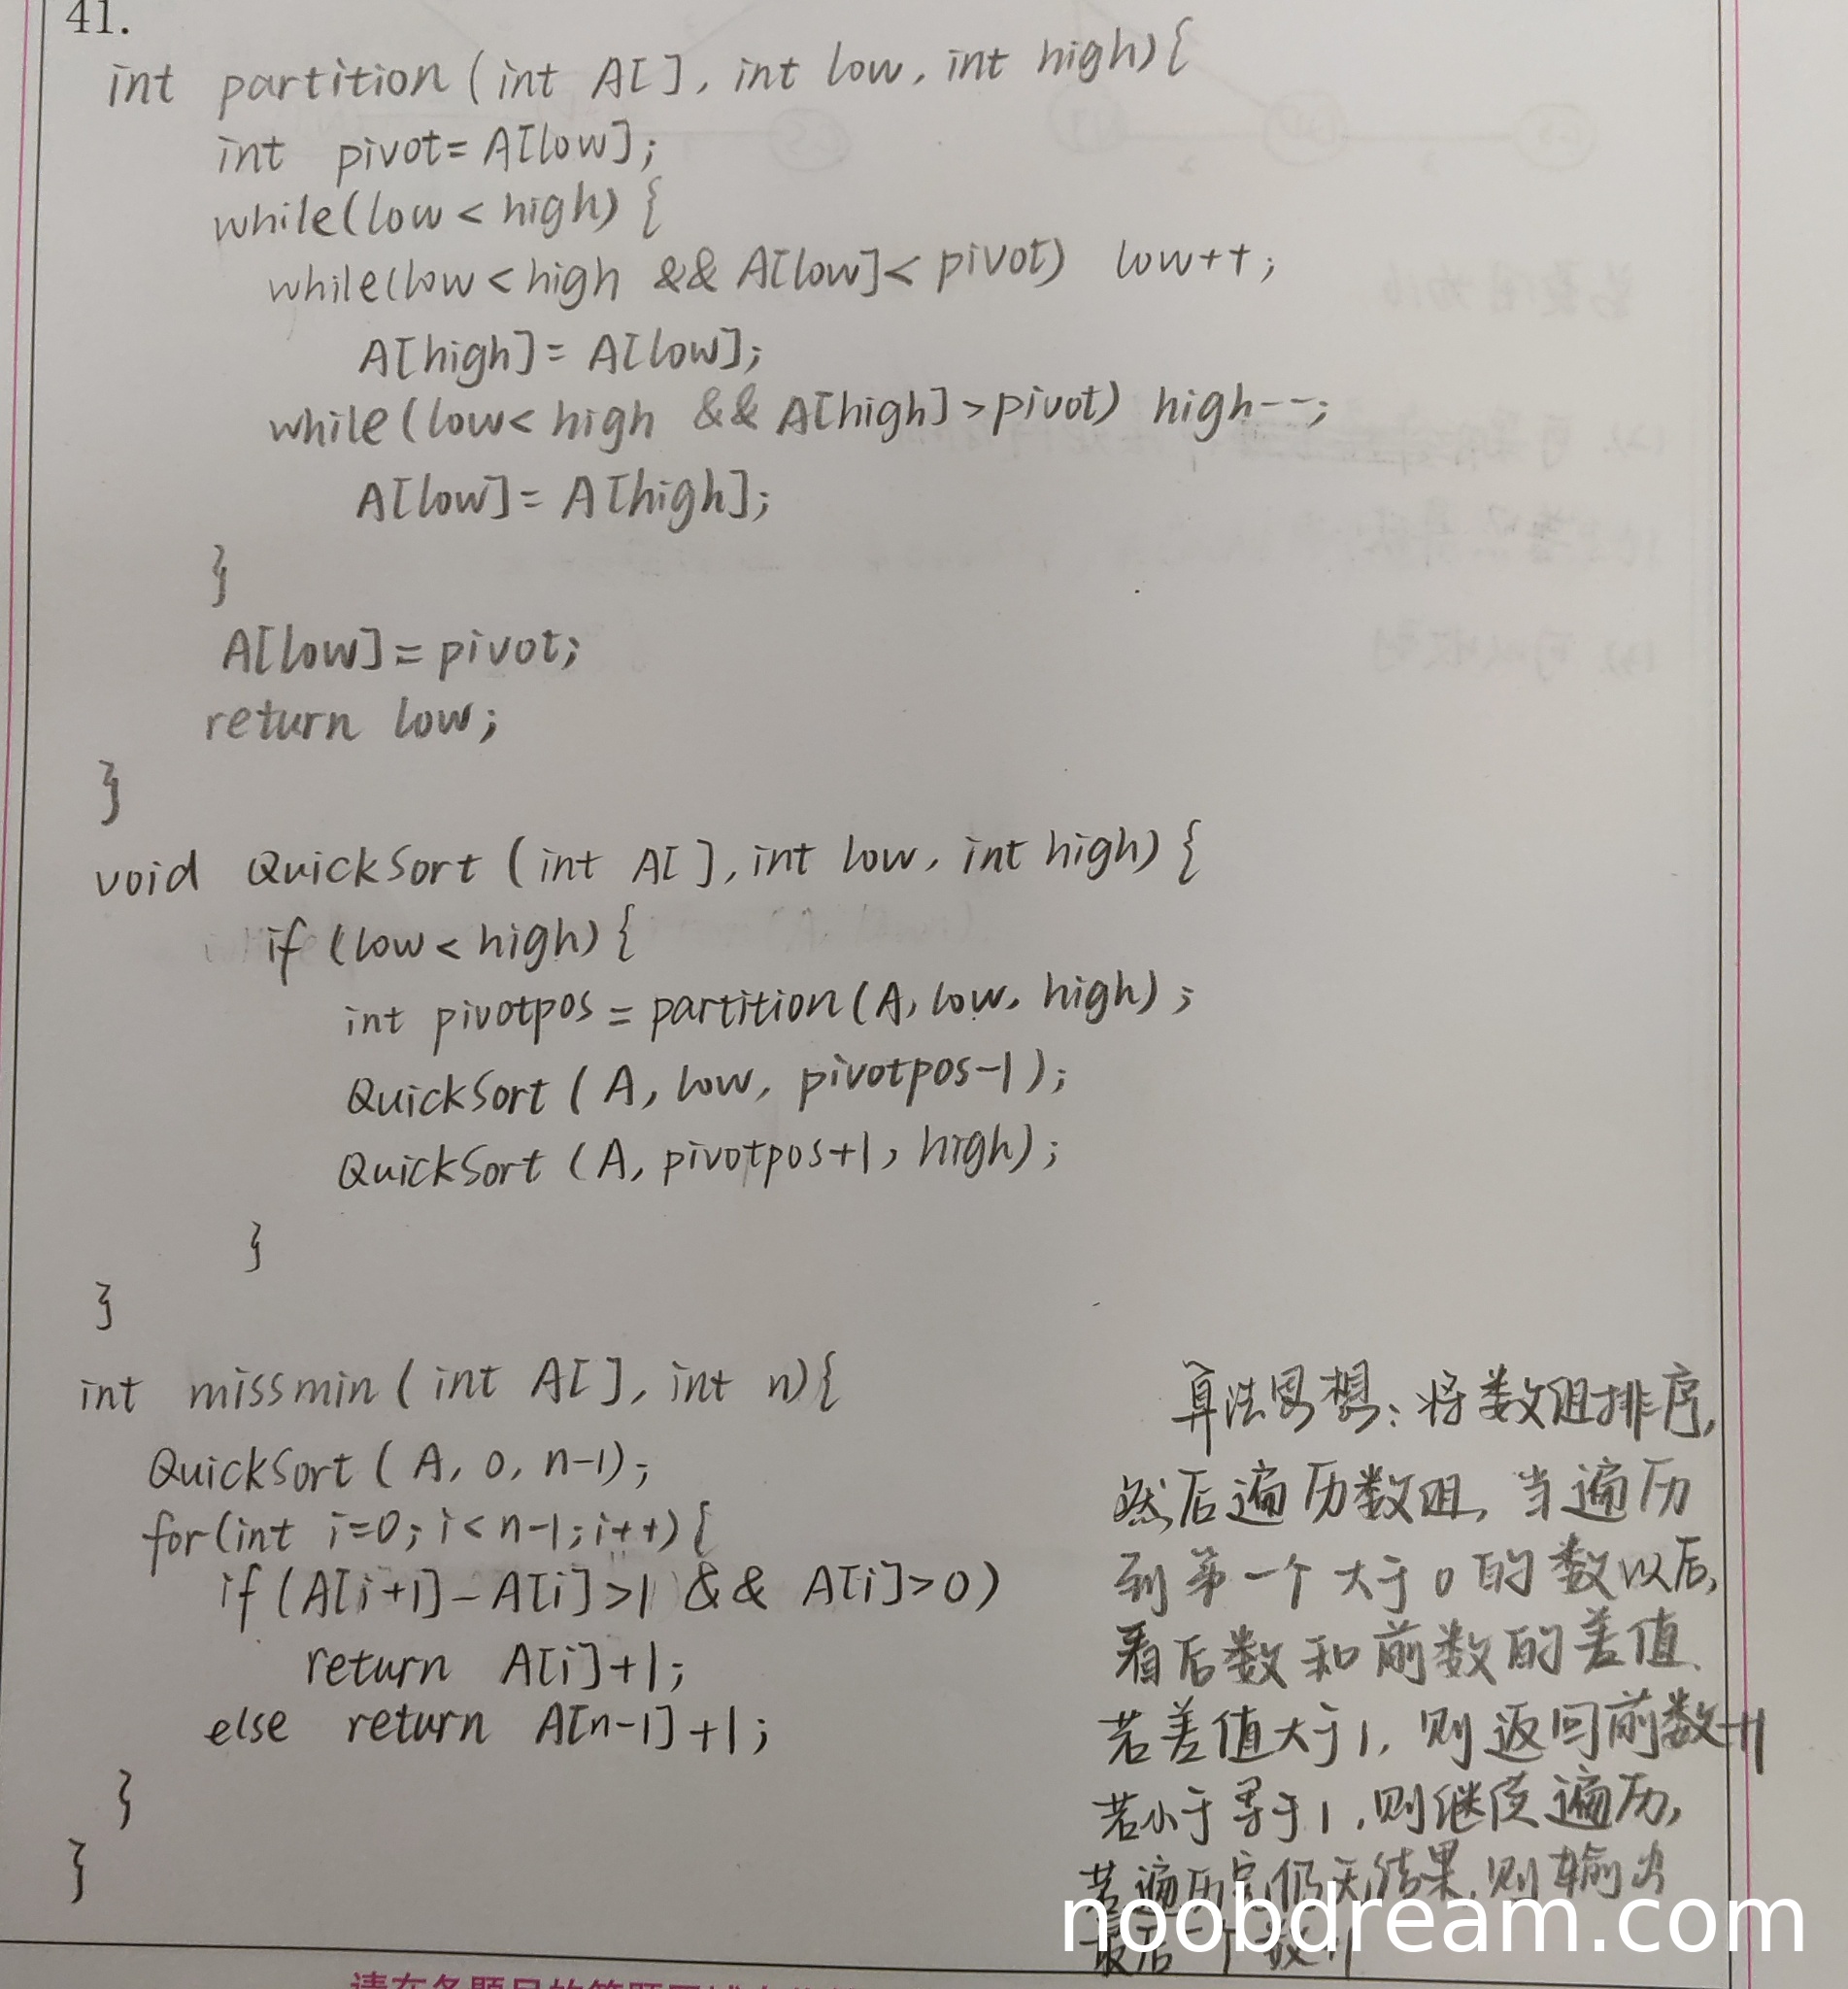 41.
int partition(int A[], int low, int high){
int pivot=A[low];
while(low<high){
while(low<high && A[low]<pivot) low++;
A[high]=A[low];
while(low<high && A[high]>pivot) high--;
A[low]=A[high];
}
A[low]=pivot;
return low;
}
void QuickSort(int A[], int low, int high){
if(low<high){
int pivotpos=partition(A, low, high);
QuickSort(A, low, pivotpos-1);
QuickSort(A, pivotpos+1, high);
}
}
int missmin(int A[], int n){
QuickSort(A, 0, n-1);
for(int i=0; i<n-1; i++){
if(A[i+1]-A[i]>1 && A[i]>0)
return A[i]+1;
else return A[n-1]+1;
}
}
算法思想: 将数组排序,
然后遍历数组, 当遍历
到第一个大于0的数以后,
看后数和前数的差值.
若差值大于1, 则返回前数+1
若小于等于1, 则继续遍历,
若遍历完仍无结果, 则输出
最后一个数+1
noobdream.com